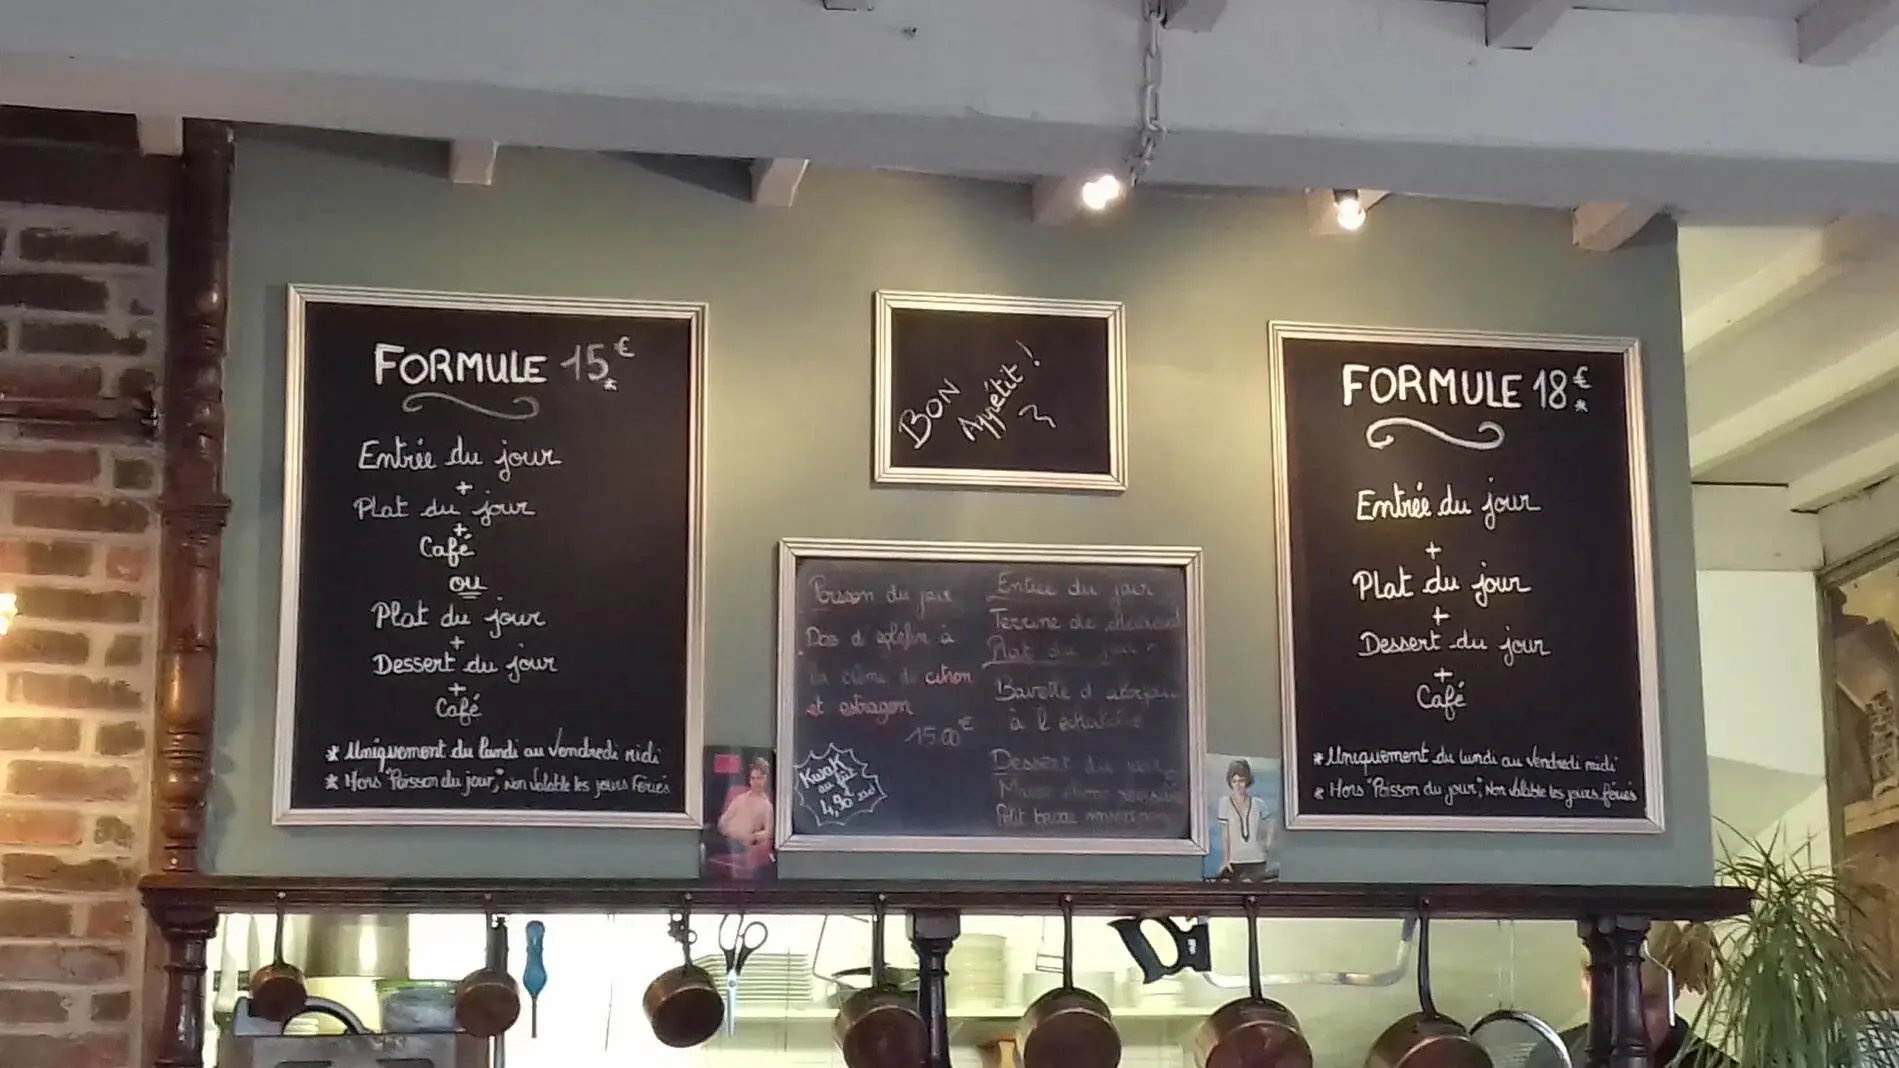 FORMULE 15€*
Entrée du jour
+
Plat du jour
+
Café
ou
Plat du jour
+
Dessert du jour
+
Café
* Uniquement du lundi au Vendredi midi
* Hors "Poisson du jour", Non Valable les jours Fériés
BON
Appétit !
Poisson du jour
Dos d'églefin à
la crème de citron
et estragon
15.00€
Kwak
au fût
4,90€
Entrée du jour
Terrine de
Plat du jour
Bavette d'
à l'échalote
Dessert du jour
FORMULE 18€*
Entrée du jour
+
Plat du jour
+
Dessert du jour
+
Café
* Uniquement du lundi au Vendredi midi
* Hors "Poisson du jour", Non Valable les jours fériés